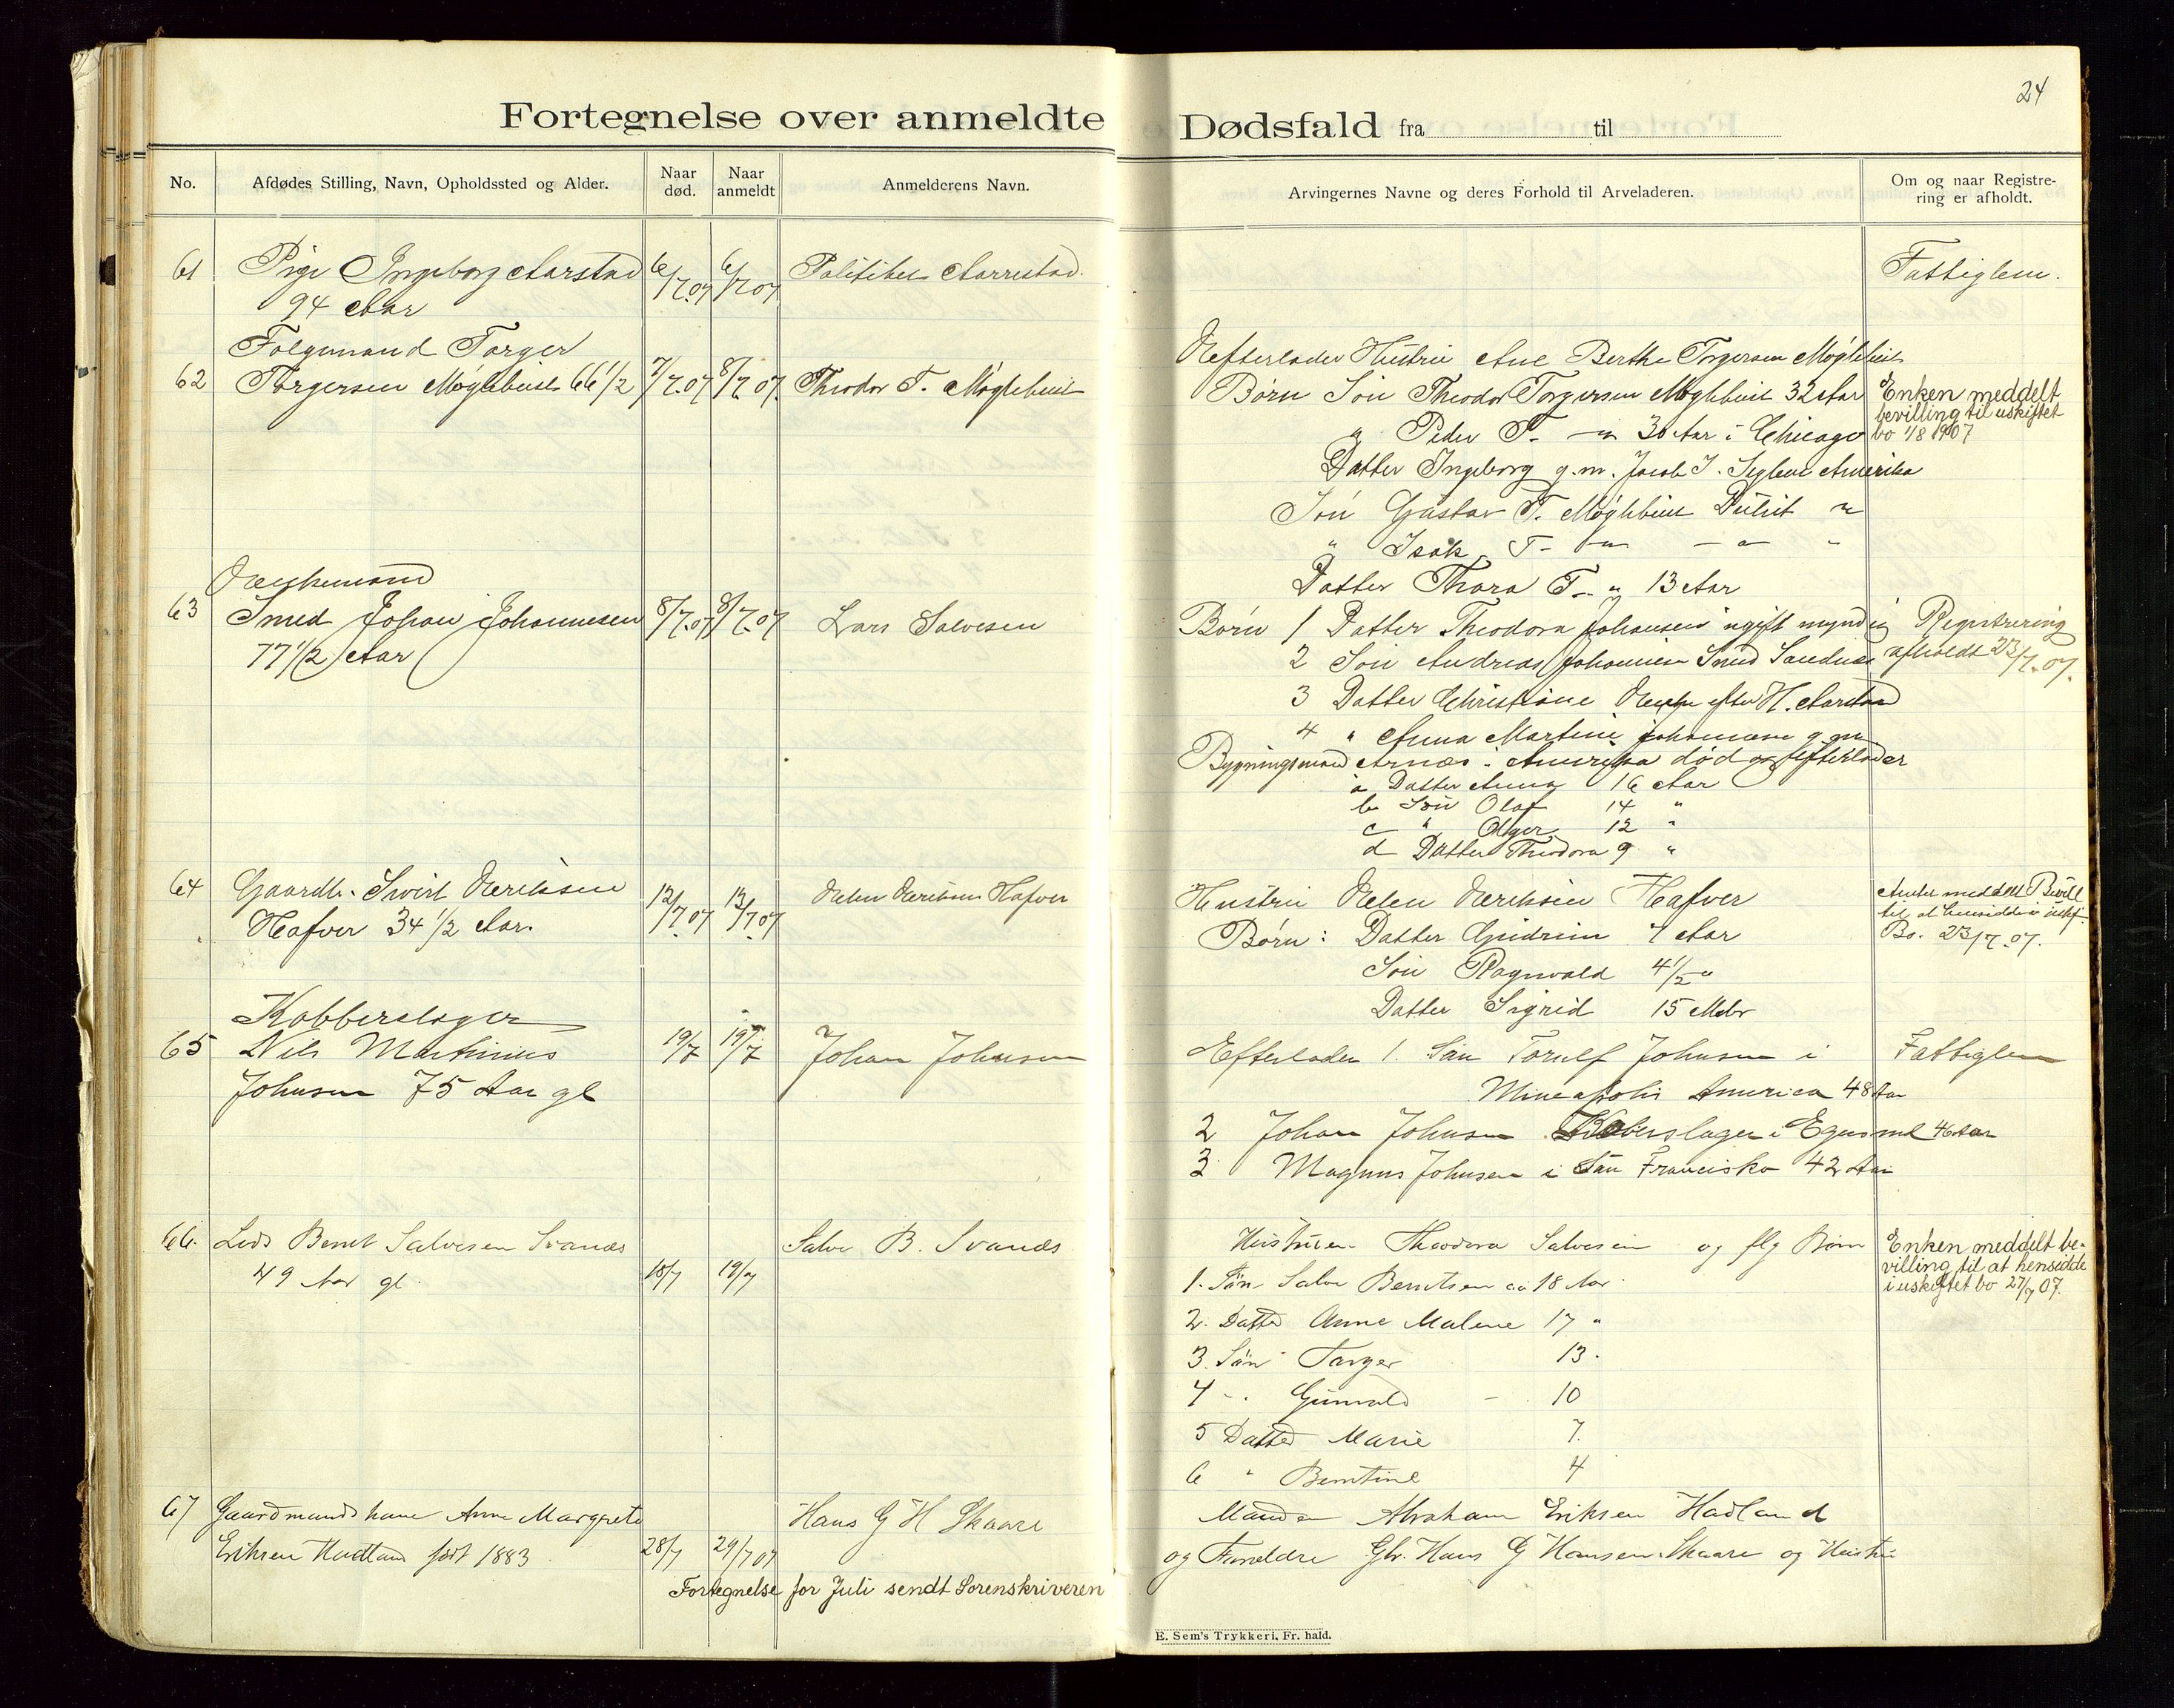 24
Fortegnelse over anmeldte Dødsfald fra til
No.
Afdødes Stilling, Navn, Opholdssted og Alder.
Naar død.
Naar anmeldt
Anmelderens Navn.
Arvingernes Navne og deres Forhold til Arveladeren.
Om og naar Registre-
ring er afholdt.
61 Pige Ingeborg Aarstad 6/7.07 6/7 07 Politibet. Aarrestad. Fattiglem.
94 Aar
Folgemand Torger
62 Torgersen Møglebust 66 1/2 7/7.07 8/7 07. Theodor T. Møglebust
Efterlader Hustru Ane Berthe Torgersen Møglebust
Børn Søn Theodor Torgersen Møglebust 32 Aar
" Peder T. — " 30 Aar i Chicago
Datter Ingeborg g.m. Jacob J. Amerika
Søn Gustav T. Møglebust "
" Isak T. — " — " "
Datter Thora T. " 13 Aar
Enken meddelt
bevilling til uskiftet
bo 1/8 1907
Enkemand
63 Smed Johan Johannesen 8/7.07 8/7.07 Lars Salvesen
77 1/2 Aar
Børn 1 Datter Theodora Johansen ugift myndig
2 Søn Andreas Johansen Smed Sandnes
3 Datter Christiane Enke efter H. Aarstad
4 " Anna Martine Johansen g.m.
Bygningsmand Arnæs i Amerika død og efterlader
a Datter Anna 16 Aar
b Søn Olaf 14 "
c " Olger 12 "
d Datter Theodora 9 "
Registrering
afholdt 23/7.07.
64 Gaardb. Sivert Eriksen 12/7.07 13/7.07 Elen Eriksen Hafver
Hafver 34 1/2 Aar.
Hustru Elen Eriksen Hafver
Børn: Datter Gudrun 7 Aar
Søn Ragnvald 4 1/2 "
Datter Sigrid 15 Mdr
Enken meddelt Bevill
til at hensidde i uskf.
Bo. 23/7.07.
Kobberslager
65 Nils Martinius 19/7 19/7 Johan Johnsen
Johnsen 75 Aar gl
Efterlader 1. Søn Torulf Johnsen i
Mineapolis America 48 Aar
2 Johan Johnsen Koberslager i Egersund 46 Aar
3 Magnus Johnsen i San Francisko 42 Aar
Fattiglem
66. Lods Bernt Salvesen Svanes 18/7 19/7 Salve B. Svanes
49 Aar gl.
Hustruen Theodora Salvesen og flg Børn
1. Søn Salve Berntsen 18 Aar
2. Datter Anne Malene 17 "
3. Søn Torger 13.
4 -. Gunvald - 10
5 Datter Marie 7.
6 " Berntine 4
Enken meddelt be-
villing til at hensidde
i uskiftet bo 27/7 07.
67 Gaardmandskone Anne Margrete Hans G H Skaare
Eriksen Hadland født 1883. 28/7 29/7 07
Manden Abraham Eriksen Hadland
og Foreldre Gbr. Hans G Hansen Skaare og Hustru
Fortegnelse for Juli sendt Sorenskriveren
E. Sem's Trykkeri, Fr. hald.